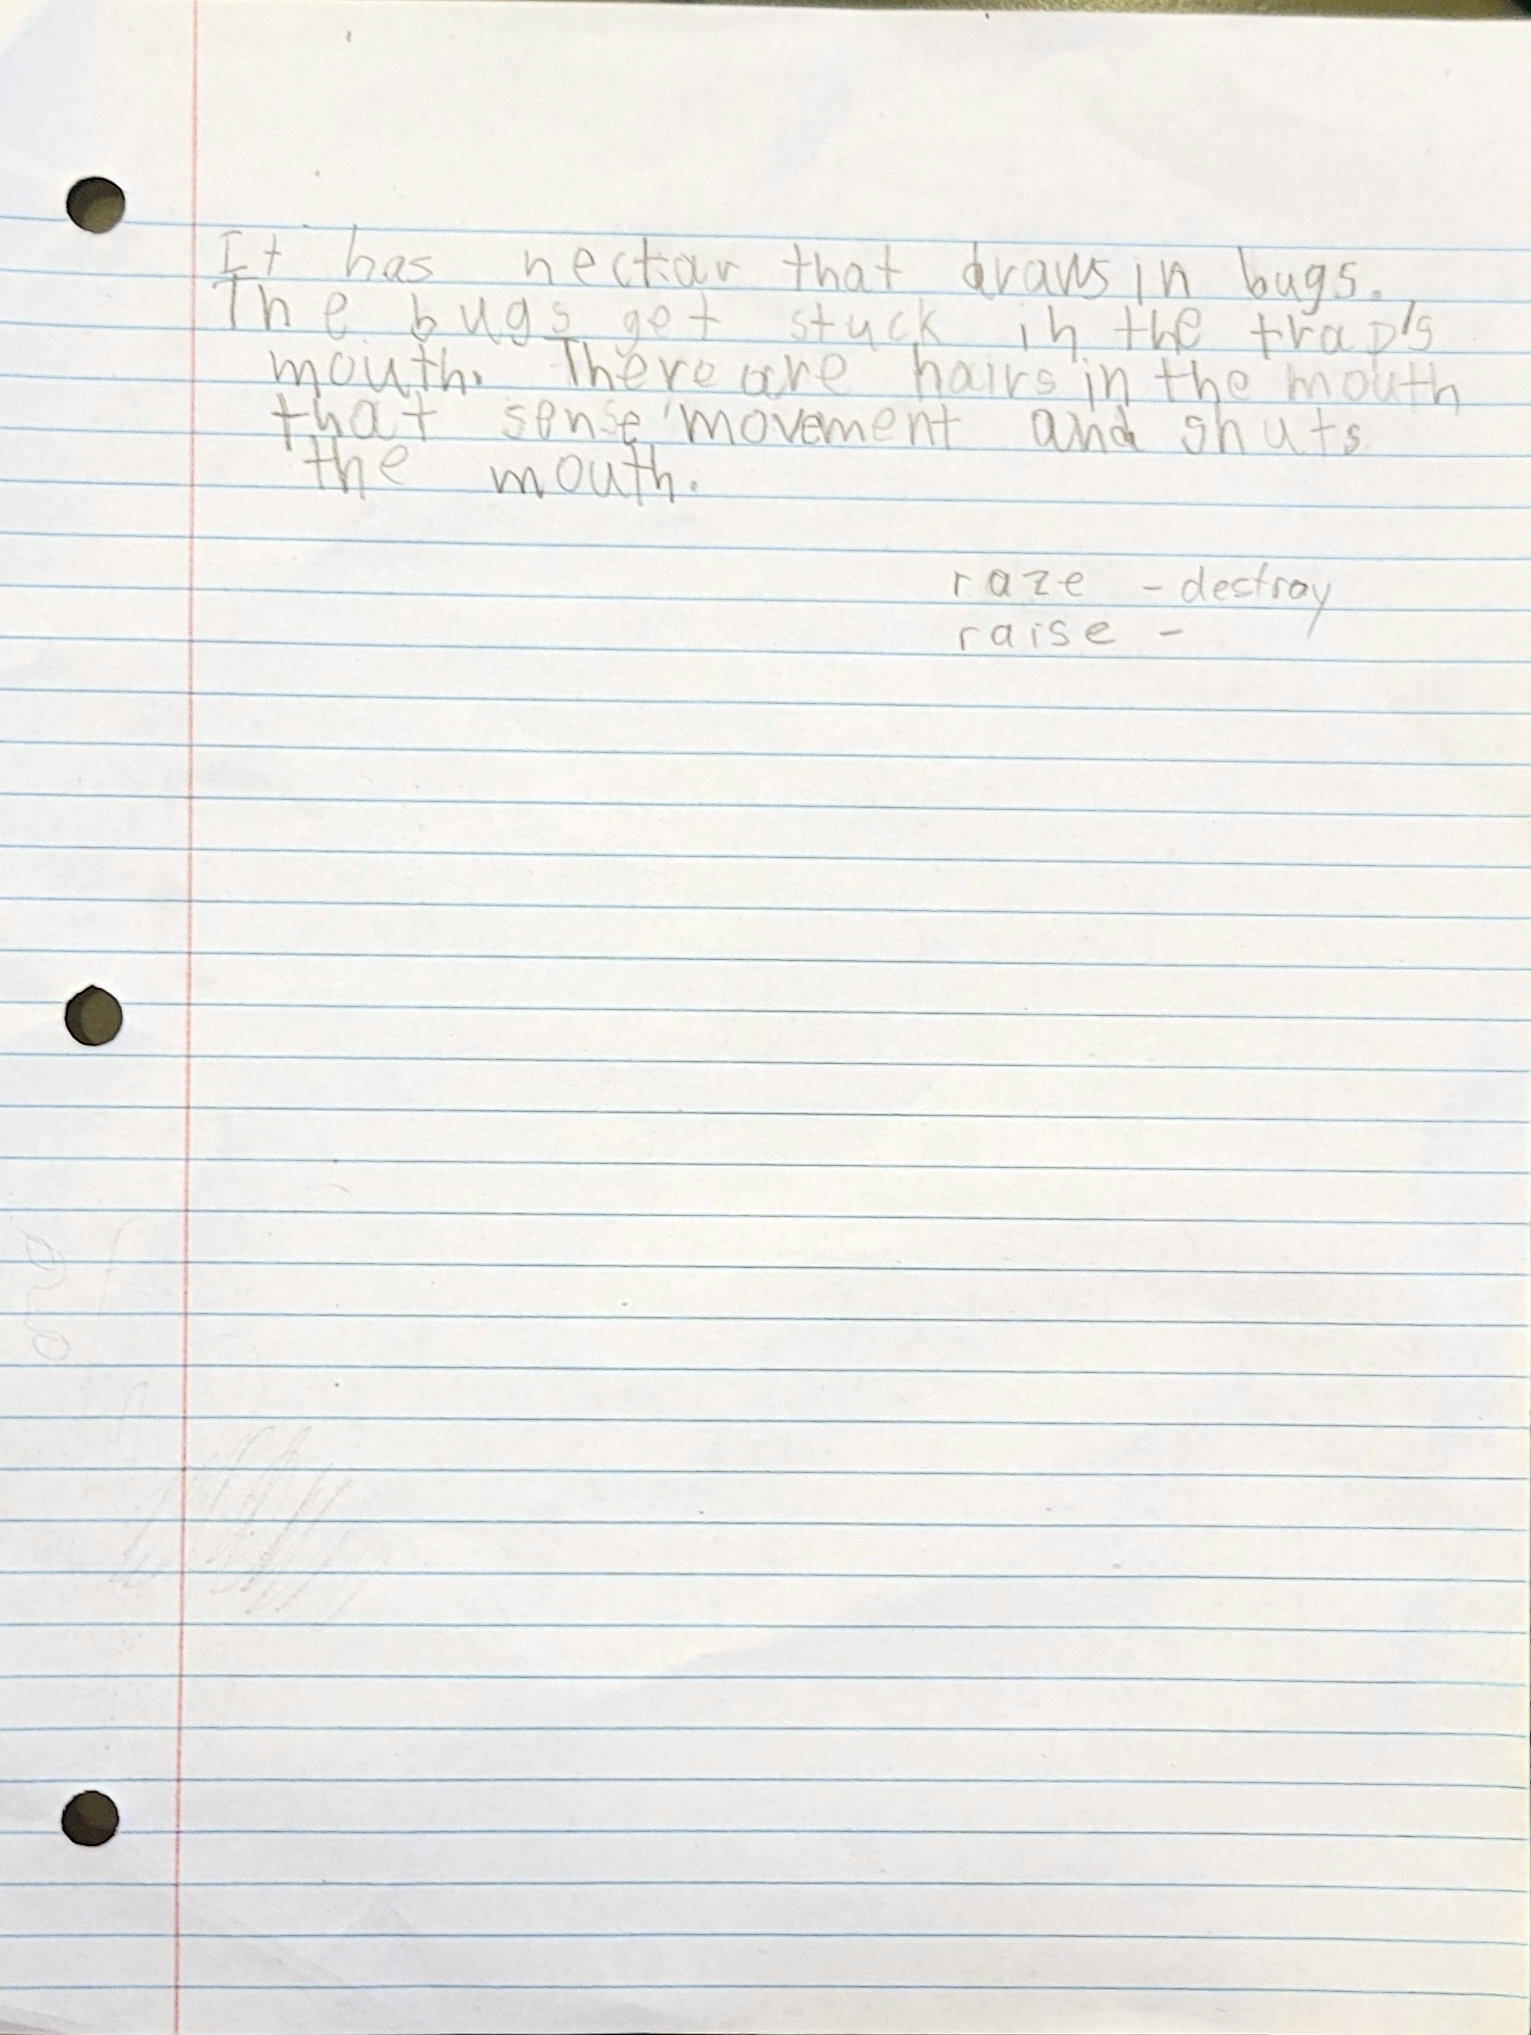 It has nectar that draws in bugs.
The bugs get stuck in the trap's
mouth. There are hairs in the mouth
that sense movement and shuts
the mouth.
raze - destroy
raise -